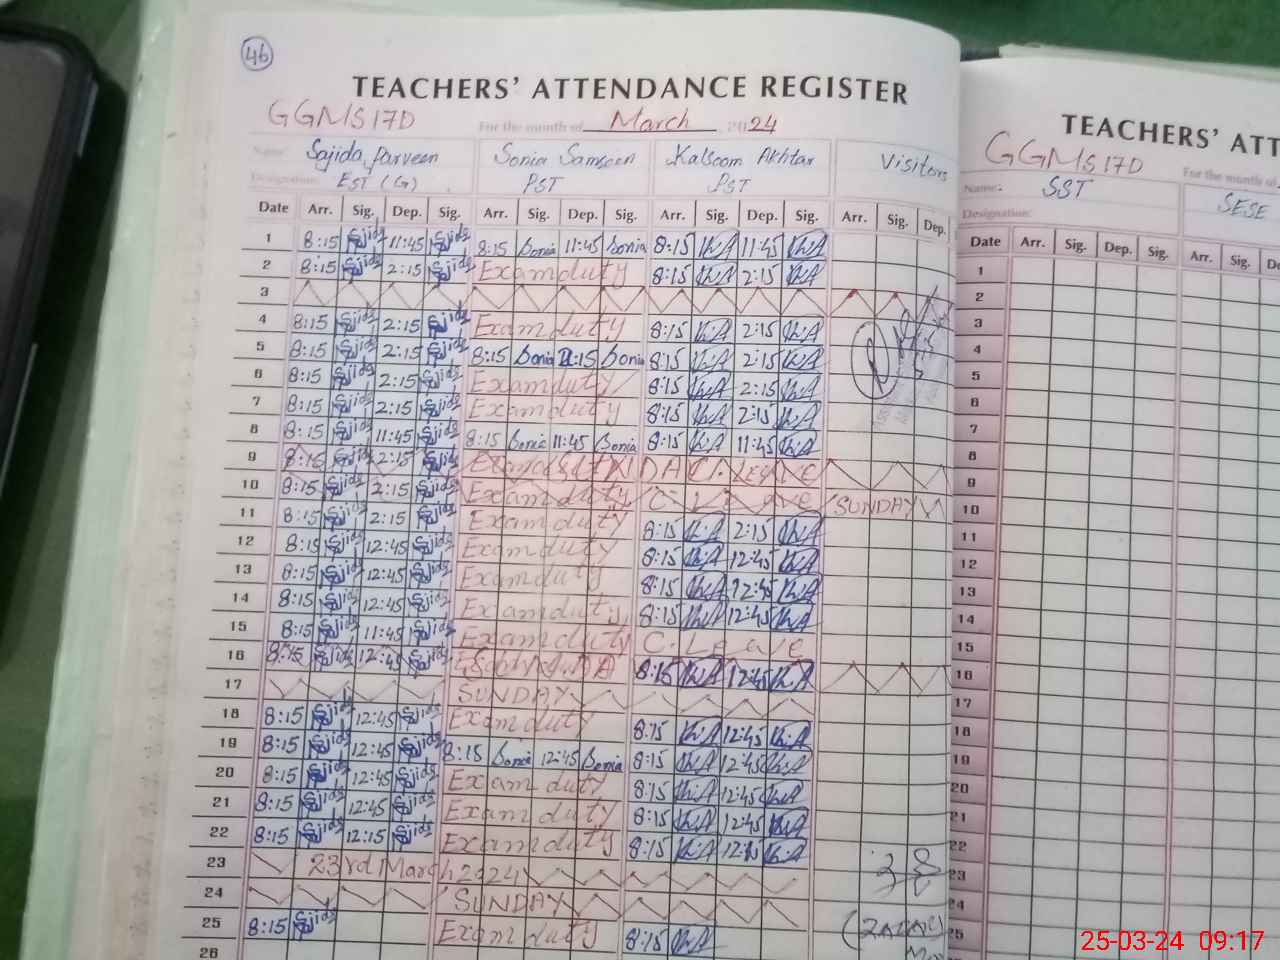 46
TEACHERS' ATTENDANCE REGISTER
GGMS 17D For the month of March 2024
Name: Sajida Parveen Sonia Samson Kalsoom Akhtar Visitors
Designation: EST (G) PST PST
Date Arr. Sig. Dep. Sig. Arr. Sig. Dep. Sig. Arr. Sig. Dep. Sig. Arr. Sig. Dep.
1 8:15 Sajida 11:45 Sajida 8:15 Sonia 11:45 Sonia 8:15 K.A 11:45 K.A
2 8:15 Sajida 2:15 Sajida Exam duty 8:15 K.A 2:15 K.A
3
4 8:15 Sajida 2:15 Sajida Exam duty 8:15 K.A 2:15 K.A
5 8:15 Sajida 2:15 Sajida 8:15 Sonia 2:15 Sonia 8:15 K.A 2:15 K.A
6 8:15 Sajida 2:15 Sajida Exam duty 8:15 K.A 2:15 K.A
7 8:15 Sajida 2:15 Sajida Exam duty 8:15 K.A 2:15 K.A
8 8:15 Sajida 11:45 Sajida 8:15 Sonia 11:45 Sonia 8:15 K.A 11:45 K.A
9 8:15 Sajida 2:15 Sajida C. Leave
10 8:15 Sajida 2:15 Sajida Exam duty C. Leave SUNDAY
11 8:15 Sajida 2:15 Sajida Exam duty 8:15 K.A 2:15 K.A
12 8:15 Sajida 12:45 Sajida Exam duty 8:15 K.A 12:45 K.A
13 8:15 Sajida 12:45 Sajida Exam duty 8:15 K.A 12:45 K.A
14 8:15 Sajida 12:45 Sajida Exam duty 8:15 K.A 12:45 K.A
15 8:15 Sajida 11:45 Sajida Exam duty C. Leave
16 8:15 Sajida 12:45 Sajida 8:15 K.A 12:45 K.A
17 SUNDAY
18 8:15 Sajida 12:45 Sajida Exam duty 8:15 K.A 12:45 K.A
19 8:15 Sajida 12:45 Sajida 8:15 Sonia 12:45 Sonia 8:15 K.A 12:45 K.A
20 8:15 Sajida 12:45 Sajida Exam duty 8:15 K.A 12:45 K.A
21 8:15 Sajida 12:45 Sajida Exam duty 8:15 K.A 12:45 K.A
22 8:15 Sajida 12:15 Sajida Exam duty 8:15 K.A K.A
23 23rd March 2024
24 SUNDAY
25 8:15 Sajida Exam duty 8:15 K.A
26
TEACHERS' ATT
GGMS 17D For the month of
Name: SST SESE
Designation:
Date Arr. Sig. Dep. Sig. Arr. Sig. De
1
2
3
4
5
6
7
8
9
10
11
12
13
14
15
16
17
18
19
20
21
22
23
24
25
25-03-24 09:17